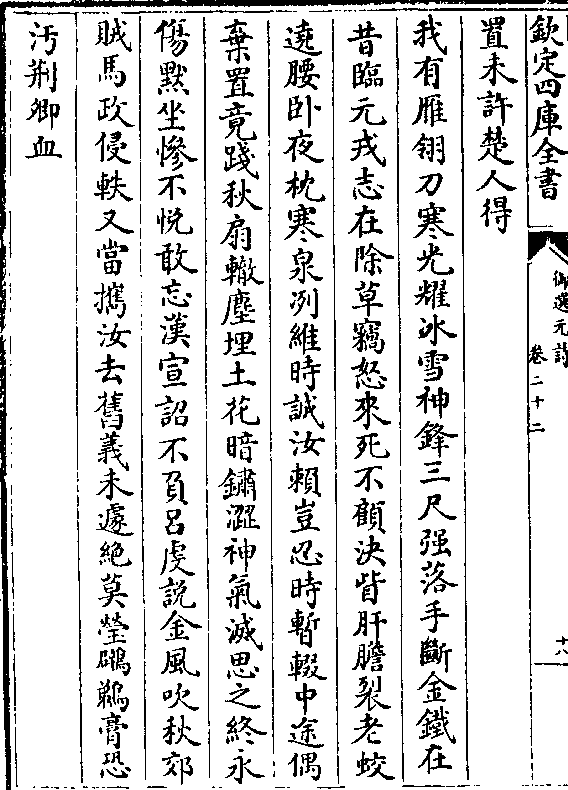 欽定四庫全書
御選元詩
卷二十二
十八
置未許楚人得
我有雁翎刀寒光耀冰雪神鋒三尺强落手斷金鐵在
昔臨元戎志在除草竊怒來死不顧決眥肝膽裂老蛟
遶腰卧夜枕寒泉冽維時誠汝賴豈忍時暫輟中途偶
棄置竟踐秋扇轍塵埋土花暗鏽澀神氣滅思之終永
傷默坐慘不悦敢忘漢宣詔不負吕虔説金風吹秋郊
賊馬政侵軼又當攜汝去舊義未遽絶莫瑩鷿鵜膏恐
汚荆卿血